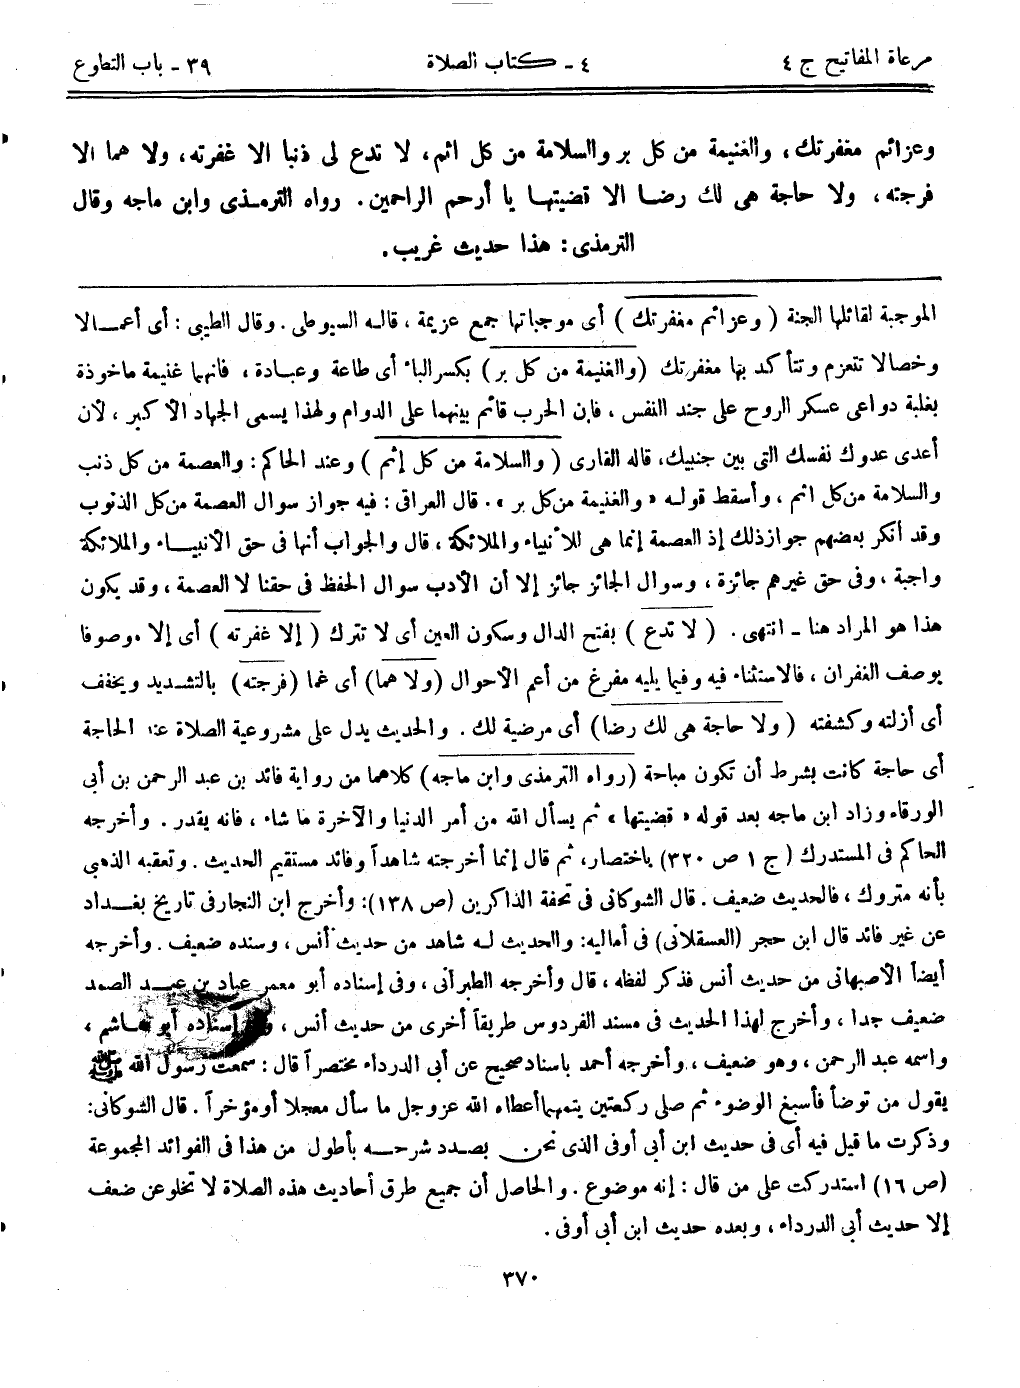 مرعاة المفاتيح ج ٤
٤ - كتاب الصلاة
٣٩ - باب التطوع
وعزائم مغفرتك، والغنيمة من كل بر والسلامة من كل اثم، لا تدع لى ذنبا الا غفرته، ولا هما الا
فرجته، ولا حاجة هى لك رضا الا قضيتها يا أرحم الراحمين. رواه الترمذى وابن ماجه وقال
الترمذى: هذا حديث غريب.
الموجبة لقائلها الجنة (وعزائم مغفرتك) أى موجباتها جمع عزيمة، قاله السيوطى. وقال الطيبى: أى أعمالا
وخصالا تتعزم وتتأكد بها مغفرتك (والغنيمة من كل بر) بكسر الباء أى طاعة وعبادة، فانهما غنيمة ماخوذة
بغلبة دواعى عسكر الروح على جند النفس، فإن الحرب قائم بينهما على الدوام ولهذا يسمى الجهاد الأكبر، لأن
أعدى عدوك نفسك التى بين جنبيك، قاله القارى (والسلامة من كل إثم) وعند الحاكم: والعصمة من كل ذنب
والسلامة من كل اثم، وأسقط قوله «والغنيمة من كل بر». قال العراقى: فيه جواز سوال العصمة من كل الذنوب
وقد أنكر بعضهم جواز ذلك إذ العصمة إنما هى للأنبياء والملائكة، قال والجواب أنها فى حق الأنبياء والملائكة
واجبة، وفى حق غيرهم جائزة، وسوال الجائز جائز إلا أن الأدب سوال الحفظ فى حقنا لا العصمة، وقد يكون
هذا هو المراد هنا - انتهى. (لا تدع) بفتح الدال وسكون العين أى لا تترك (إلا غفرته) أى إلا موصوفا
بوصف الغفران، فالاستثناء فيه وفيما يليه مفرغ من أعم الأحوال (ولا هما) أى غما (فرجته) بالتشديد ويخفف
أى أزلته وكشفته (ولا حاجة هى لك رضا) أى مرضية لك. والحديث يدل على مشروعية الصلاة عند الحاجة
أى حاجة كانت بشرط أن تكون مباحة (رواه الترمذى وابن ماجه) كلاهما من رواية فائد بن عبد الرحمن بن أبى
الورقاء وزاد ابن ماجه بعد قوله «قضيتها» ثم يسأل الله من أمر الدنيا والآخرة ما شاء، فانه يقدر. وأخرجه
الحاكم فى المستدرك (ج ١ ص ٣٢٠) باختصار، ثم قال إنما أخرجته شاهداً وفائد مستقيم الحديث. وتعقبه الذهبى
بأنه متروك، فالحديث ضعيف. قال الشوكانى فى تحفة الذاكرين (ص ١٣٨): وأخرج ابن النجار فى تاريخ بغداد
عن غير فائد قال ابن حجر (العسقلانى) فى أماليه: والحديث له شاهد من حديث أنس، وسنده ضعيف. وأخرجه
أيضاً الأصبهانى من حديث أنس فذكر لفظه، قال وأخرجه الطبرانى، وفى إسناده أبو معمر عباد بن عبد الصمد
ضعيف جدا، وأخرج لهذا الحديث فى مسند الفردوس طريقاً أخرى من حديث أنس، وفى إسناده أبو هاشم،
واسمه عبد الرحمن، وهو ضعيف، وأخرجه أحمد باسناد صحيح عن أبى الدرداء مختصراً قال: سمعت رسول الله ﷺ
يقول من توضأ فأسبغ الوضوء ثم صلى ركعتين يتمهما أعطاه الله عزوجل ما سأل معجلا أو مؤخراً. قال الشوكانى:
وذكرت ما قيل فيه أى فى حديث ابن أبى أوفى الذى نحن بصدد شرحه بأطول من هذا فى الفوائد المجموعة
(ص ١٦) استدركت على من قال: إنه موضوع. والحاصل أن جميع طرق أحاديث هذه الصلاة لا تخلو عن ضعف
إلا حديث أبى الدرداء، وبعده حديث ابن أبى أوفى.
٣٧٠